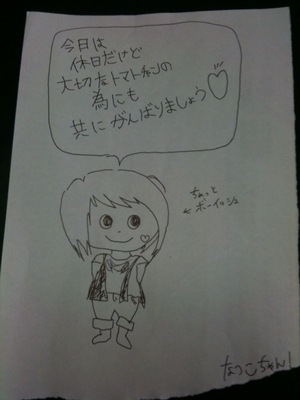 今日は
休日だけど
大切なトマトチャンの
為にも
共にがんばりましょう♡
ちょっと
←ボーイッシュ
なつこちゃん!